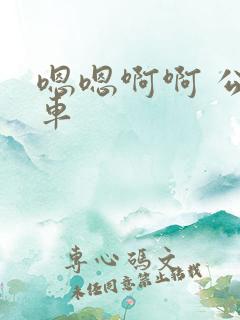 嗯嗯啊啊 公
車
專心碼文
未经同意禁止转载